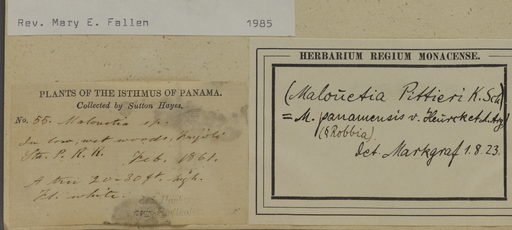 Rev. Mary E. Fallen 1985
PLANTS OF THE ISTHMUS OF PANAMA.
Collected by Sutton Hayes.
No. 55. Malouetia sp.
In low, wet woods,
Sta. P. R. R. Feb. 1861.
A tree 20-30 ft. high.
Fl. white.
HERBARIUM REGIUM MONACENSE.
(Malouetia Pittieri K. Sch)
= M. panamensis v. Heurck et. Arg.
(§ Robbia)
Det. Markgraf 1.8.23.